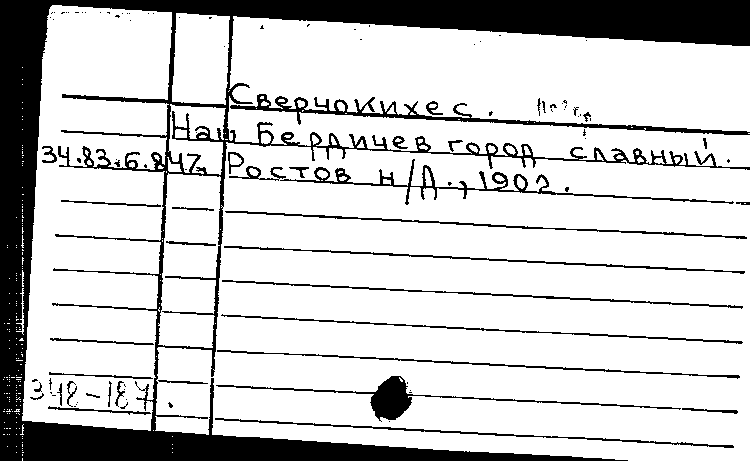 Сверчокихес.
Наш Бердичев город славный.
34.83.6.847. Ростов н/Д., 1902.
348-187.